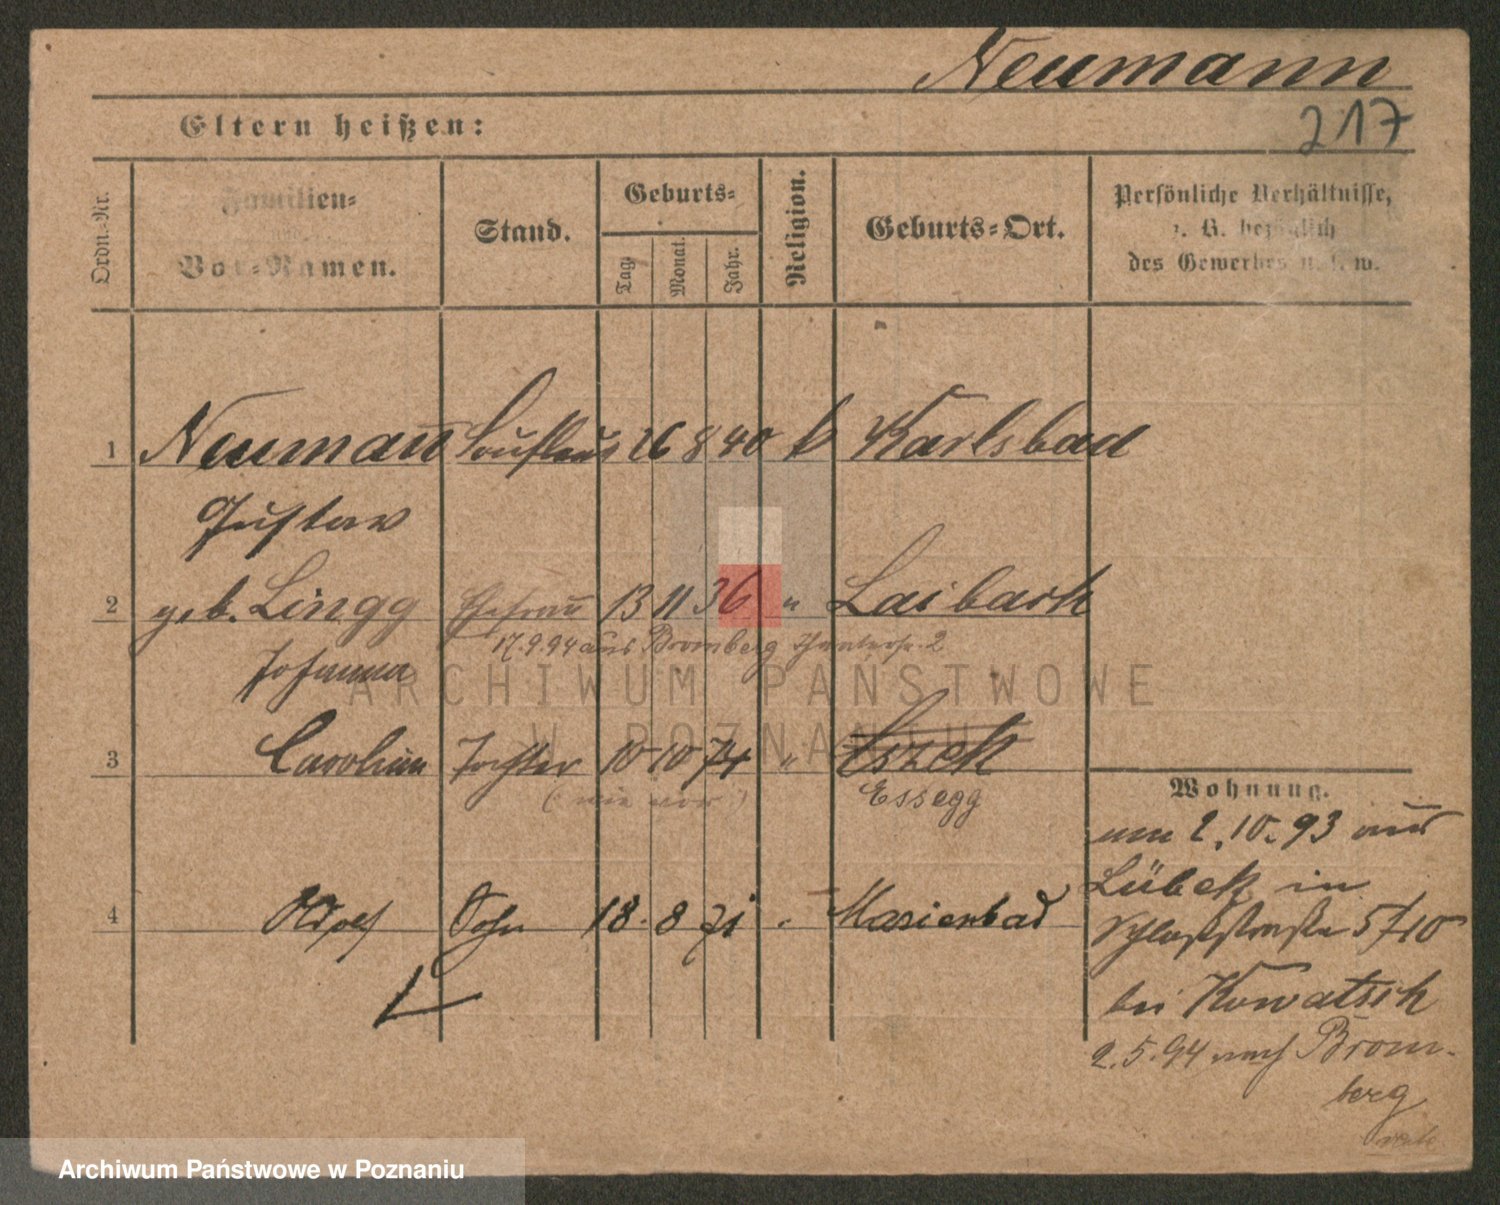 Neumann
217
Eltern heißen:
Ordn.-Nr.
Familien-
und
Vor-Namen.
Stand.
Geburts-
Tag.
Monat.
Jahr.
Religion.
Geburts-Ort.
Persönliche Verhältnisse,
z. B. bezüglich
des Gewerbes u. s. w.
1 Neumann 26 8 40 k Karlsbad
Gustav
2 geb. Lingg Ehefrau 13 11 36 " Laibach
17.9.94 aus Bromberg 2
Johanna
3 Caroline Tochter 10 10 74 " Eszek
(wie vor) Essegg
4 Adolf Sohn 18. 8 71 " Marienbad
Wohnung.
am 2.10.93 aus
Lübeck in
Schloßstraße 5/10
bei Kowatsch
2.5.94 nach Brom-
berg
ARCHIWUM PAŃSTWOWE
W POZNANIU
Archiwum Państwowe w Poznaniu